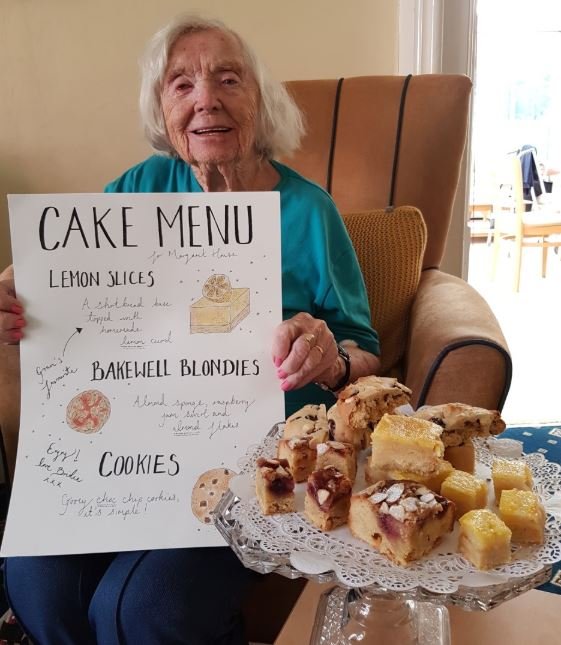 CAKE MENU
for Margaret House
LEMON SLICES
A shortbread base
topped with
homemade
lemon curd
Gran's
favourite
BAKEWELL BLONDIES
Almond sponge, raspberry
jam swirl and
almond flakes
Enjoy!
love
xxx
COOKIES
Gooey choc chip cookies,
it's simple!